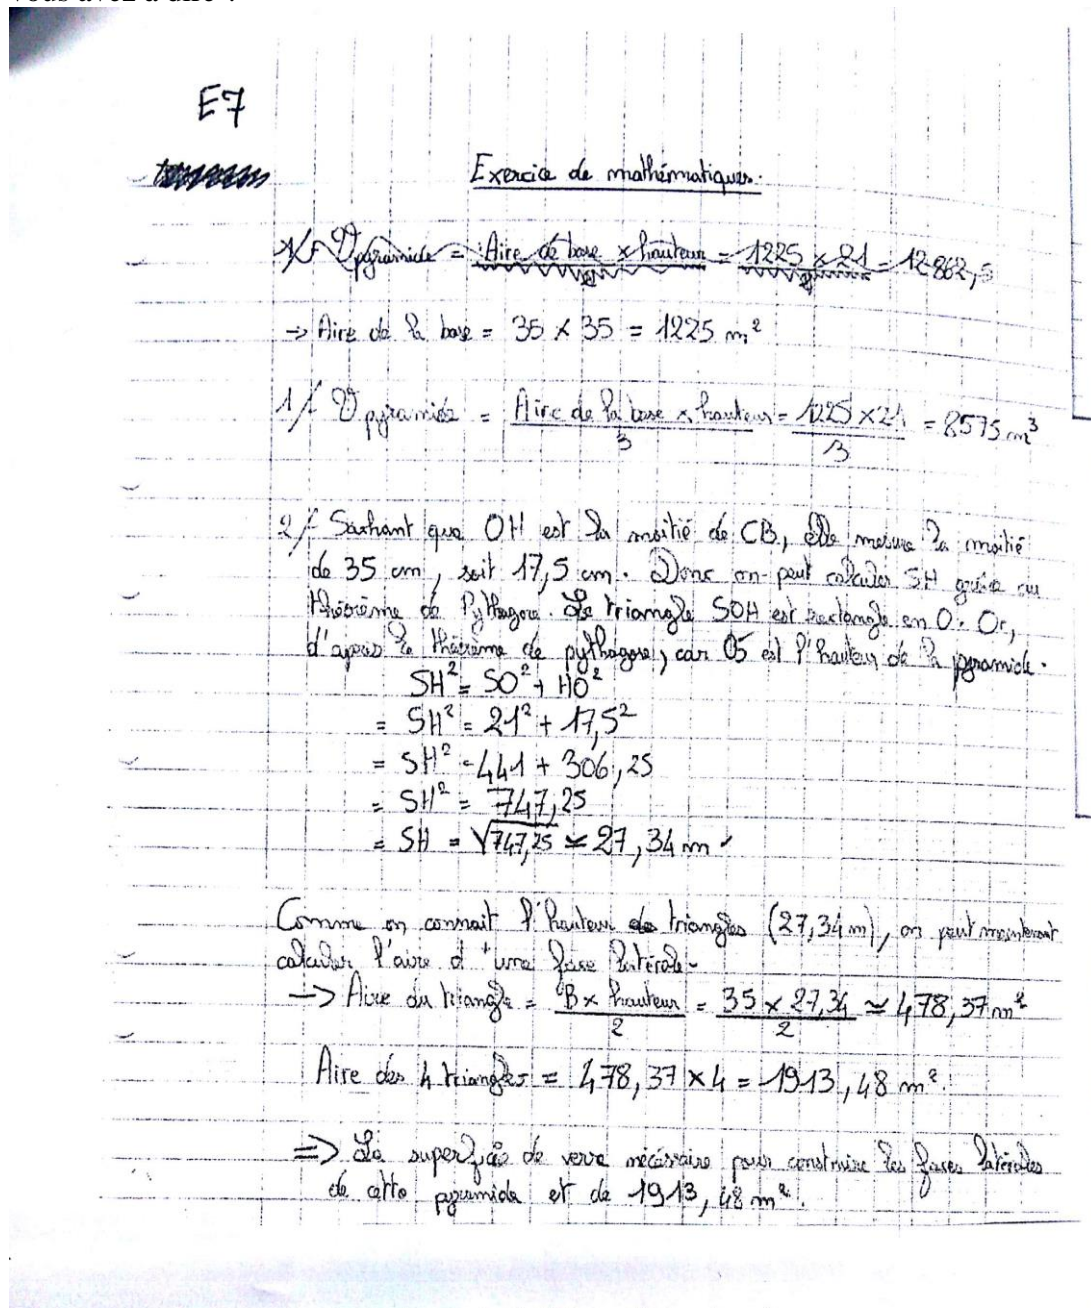 vous avez à dire ?
E7
Exercice de mathématiques.
1/- V pyramide = Aire de base x hauteur / 2 = 1225 x 21 / 2 = 12862,5
-> Aire de la base = 35 x 35 = 1225 m²
1/- V pyramide = Aire de la base x hauteur / 3 = 1225 x 21 / 3 = 8575 m³
2/- Sachant que OH est la moitié de CB, elle mesure la moitié
de 35 cm, soit 17,5 cm. Donc on peut calculer SH grâce au
théorème de Pythagore. Le triangle SOH est rectangle en O. Or,
d'après le théorème de pythagore, car OS est l'hauteur de la pyramide.
SH² = SO² + HO²
= SH² = 21² + 17,5²
= SH² = 441 + 306,25
= SH² = 747,25
= SH = √747,25 ≃ 27,34 m
Comme on connait l'hauteur des triangles (27,34 m), on peut maintenant
calculer l'aire d'une face latérale.
-> Aire du triangle = B x hauteur / 2 = 35 x 27,34 / 2 ≃ 478,37 m²
Aire des 4 triangles = 478,37 x 4 = 1913,48 m².
=> La superficie de verre nécessaire pour construire les faces latérales
de cette pyramide et de 1913,48 m².